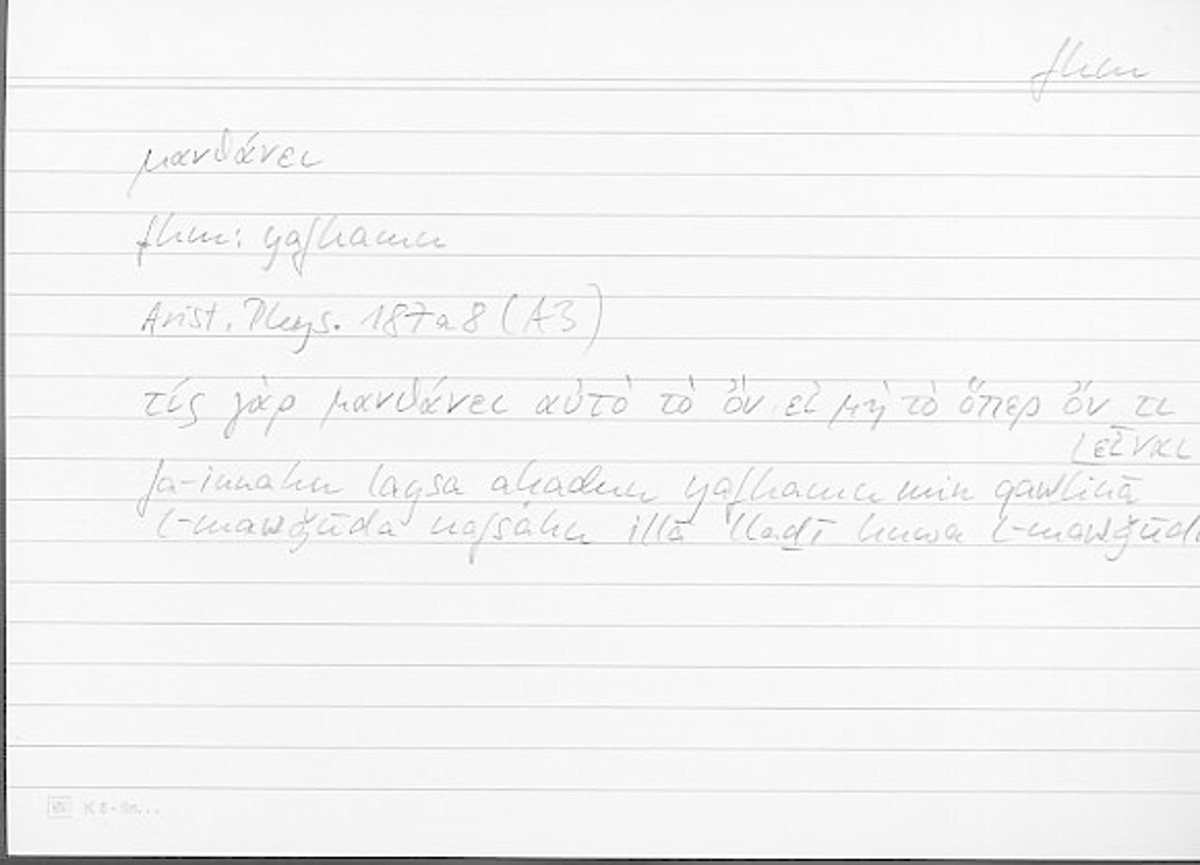 fhm
μανθάνει
fhm: yafhamu
Arist. Phys. 187a8 (A3)
τίς γὰρ μανθάνει αὐτὸ τὸ ὄν εἰ μὴ τὸ ὅπερ ὄν τι
[εἶναι
fa-innahu laysa aḥadun yafhamu min qawlinā
l-mawǧūda nafsahu illā 'llaḏī huwa l-mawǧūdu